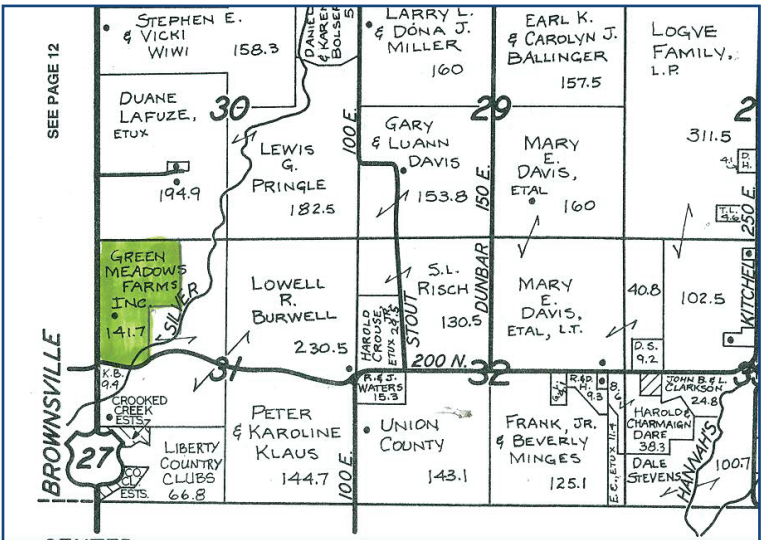 SEE PAGE 12
STEPHEN E.
& VICKI
WIWI
158.3
DANIEL
& KAREN
BOLSER
5
LARRY L.
& DONA J.
MILLER
160
EARL K.
& CAROLYN J.
BALLINGER
157.5
LOGVE
FAMILY,
L.P.
311.5
DUANE
LAFUZE,
ETUX
194.9
30
29
2
LEWIS
G.
PRINGLE
182.5
100 E.
GARY
& LUANN
DAVIS
153.8
150 E.
MARY
E.
DAVIS,
ETAL
160
D.
H.
4.1
T.L.
9.6
250 E.
GREEN
MEADOWS
FARMS
INC.
141.7
SILVER
LOWELL
R.
BURWELL
230.5
HAROLD
CROUSE, JR.
ETUX 24.5
STOUT
S.L.
RISCH
130.5
DUNBAR
MARY
E.
DAVIS,
ETAL, L.T.
40.8
D.S.
9.2
102.5
KITCHEL
BROWNSVILLE
27
K.B.
9.4
CROOKED
CREEK
ESTS.
CO.
CL.
ESTS.
LIBERTY
COUNTRY
CLUBS
66.8
31
PETER
& KAROLINE
KLAUS
144.7
100 E.
R. & J.
WATERS
15.3
200 N.
32
UNION
COUNTY
143.1
FRANK, JR.
& BEVERLY
MINGES
125.1
R.&D.
H.
9.3
8.6
E.E., ETUX 11.4
JOHN B. & L.
CLARKSON
24.8
HAROLD &
CHARMAIGN
DARE
38.3
DALE
STEVENS
HANNAH'S
100.7